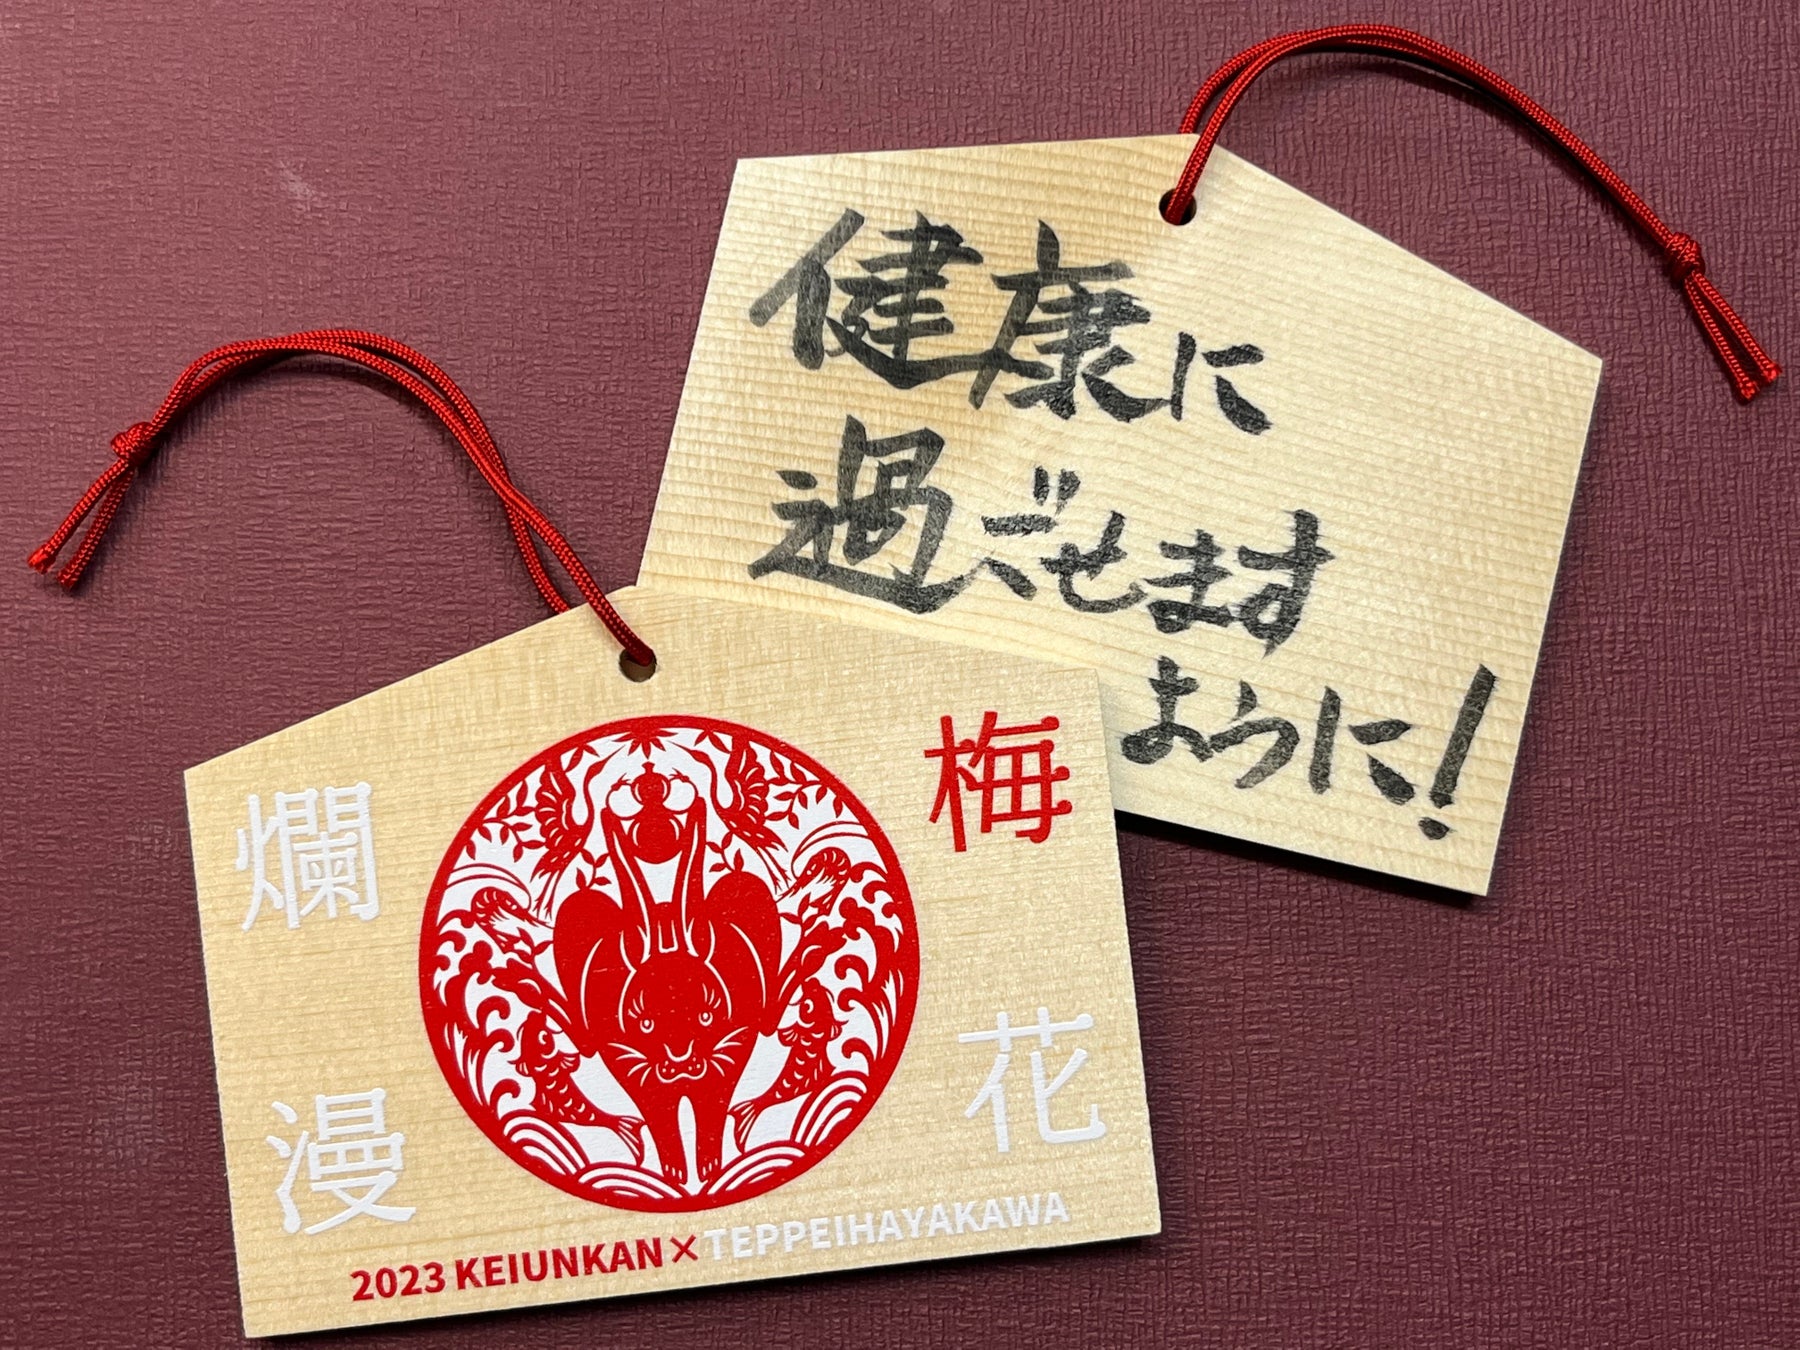 健康に
過ごせます
ように!
梅花
爛漫
2023 KEIUNKAN×TEPPEIHAYAKAWA